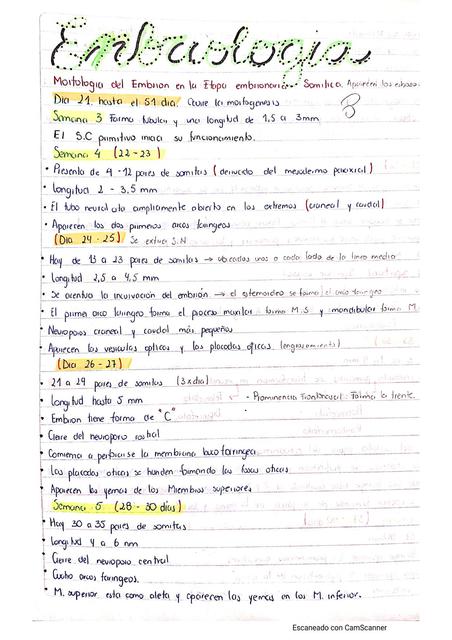 Embriologia
Morfologia del Embrion en la Etapa embrionaria - Somitica. Aparecen los esbozos
Dia 21 hasta el 51 dia. Ocurre la morfogenesis
Semana 3 Forma tubular y una longitud de 1,5 a 3mm
El S.C primitivo inicia su funcionamiento.
Semana 4 (22 - 23)
• Presenta de 4 - 12 pares de somitas (derivado del mesodermo paraxial)
• longitud 2 - 3,5 mm
• El tubo neural esta ampliamente abierto en los extremos (craneal y caudal)
• Aparecen los dos primeros arcos faringeos
(Dia 24 - 25) Se extrae S.N
• Hay de 13 a 23 pares de somitas → ubicados unos a cada lado de la linea media
• longitud 2,5 a 4,5 mm
• Se acentua la incurvación del embrión → el esternoideo se forma el arco faringeo
• El primer arco faringeo forma el proceso maxilar forma M.S y mandibular forma M.
• Neuroporo craneal y caudal más pequeños
• Aparecen las vesiculas opticas y las placodas oticas (engrosamiento)
(Dia 26 - 27)
• 21 a 29 pares de somitas (3xdia)
• longitud hasta 5 mm - Prominencia frontonasal: Forma la frente.
• Embrion tiene forma de "C"
• Cierre del neuroporo rostral
• Comienza a perforarse la membrana bucofaringea
• Las placodas oticas se hunden formando las fosas oticas
• Aparecen las yemas de los Miembros superiores
Semana 5 (28 - 30 dias)
• Hay 30 a 35 pares de somitas
• longitud 4 a 6 mm
• Cierre del neuroporo
• Cuatro arcos faringeos.
• M. superior esta como aleta y aparecen las yemas en los M. inferior.
Escaneado con CamScanner